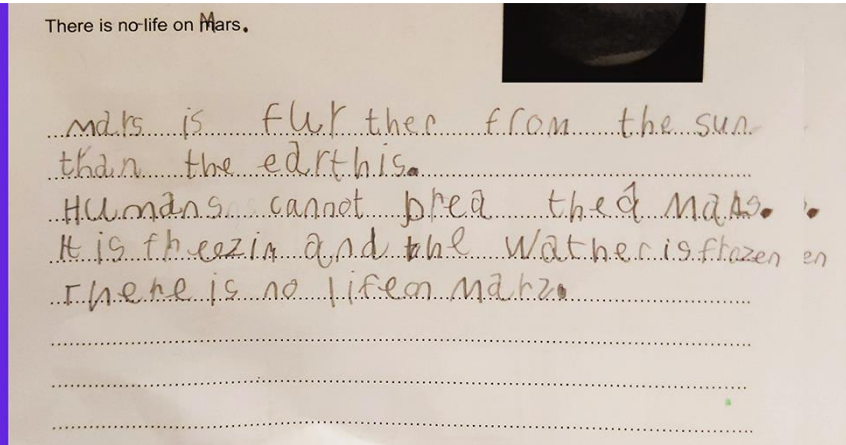 There is no life on Mars.
Mars is fur ther from the sun
than the earthis.
Humans cannot brea thed Mars.
It is fheezin and the Wather is frozen en
There is no lifeon Marz.